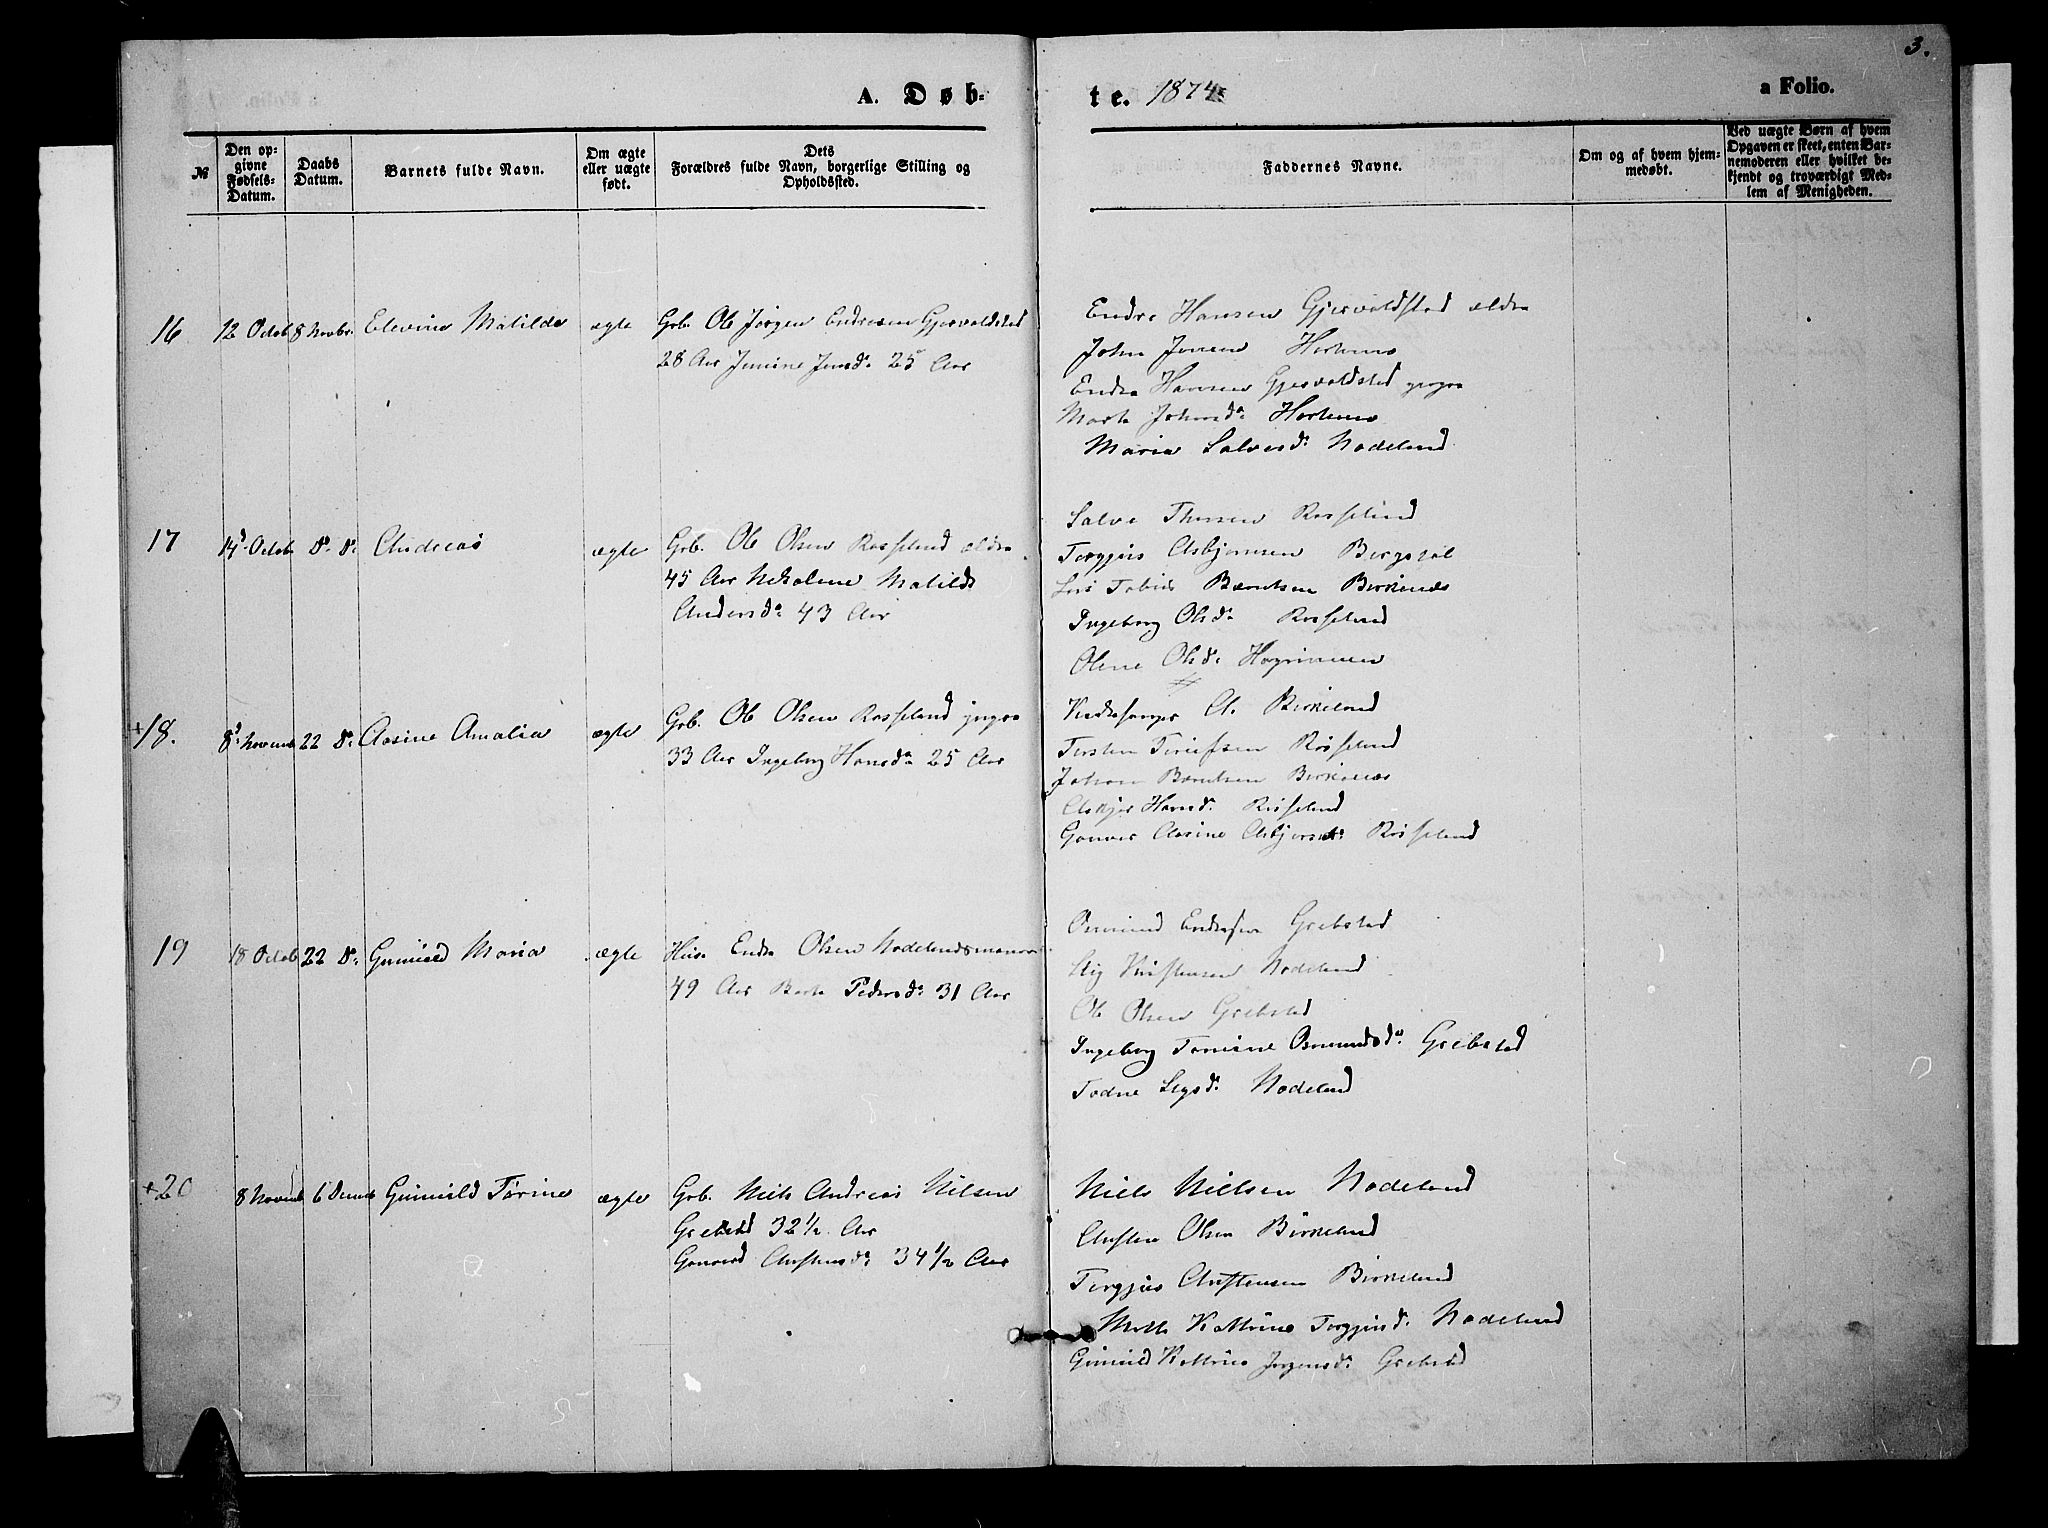 3.
A. Døb-
te. 1874
a Folio.
№
Den op-
givne
Fødsels-
Datum.
Daabs
Datum.
Barnets fulde Navn.
Om ægte
eller uægte
født.
Dets
Forældres fulde Navn, borgerlige Stilling og
Opholdssted.
Faddernes Navne.
Om og af hvem hjem-
medøbt.
Ved uægte Børn af hvem
Opgaven er skeet, enten Bar-
nemoderen eller hvilket be-
kjendt og troværdigt Med-
lem af Menigheden.
16 12 Octob 8 Novbr. Elevine Matilde ægte Grb. Ole Jørgen Endresen Gjervoldstad
28 Aar Jensine Jensd. 25 Aar
Endre Hansen Gjervoldstad ældre
John Jensen
Endre Hansen Gjervoldstad yngre
Marte Johnsd.
Maria Salvesd. Nodeland
17 14d. Octob 8. d. Andreas ægte Grb. Ole Olsen Rosseland ældre
45 Aar Nekolene Matilde
Andersd. 43 Aar
Salve Rosseland
Torgjus Asbjornsen Birgstøl
Tobias Berntsen Birkenæs
Ingeborg Olsd. Rosseland
Olene Olsd.
+18. 8d. Novemb 22 d. Aasine Amalia ægte Grb. Ole Olsen Rosseland yngre
33 Aar Ingeborg Hansd. 25 Aar
A. Birkeland
Torsten Rosseland
Johan Berntsen Birkenæs
Hansd. Rosseland
Gunver Aasine Asbjørnsd. Rosseland
19 18 Octob 22 d. Gunnild Maria ægte Huus. Endre Olsen Nodelandsmoen
49 Aar Berte Pedersd. 31 Aar
Osmund Endresen Grebstad
Stig Kristensen Nodeland
Ole Olsen Grebstad
Ingeborg Tomine Osmundsd. Grebstad
Todne Stigsd. Nodeland
+20 8 Novemb 6 Decmb Gunnild Torine ægte Grb. Niels Andreas Nilsen
Grebstad 32½ Aar
Gunvord Austensd. 34½ Aar
Niels Nielsen Nodeland
Austen Olsen Birkeland
Torgjus Austensen Birkeland
Kattrine Torgjusd. Nodeland
Gunnild Kattrine Jørgensd. Grebstad